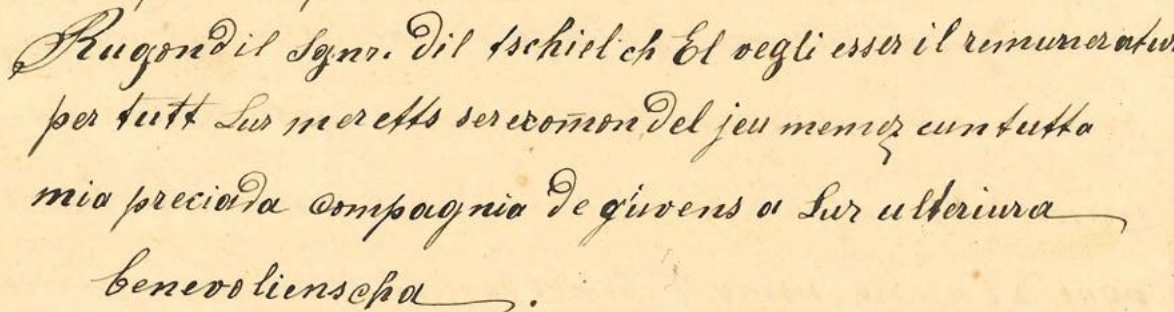 Rugond il Sgnr. dil tschiel ch El vegli esser il remuneratur
per tutt Lur meretts se recom̄ondel jeu memez cun tutta
mia preciada compagnia de giuvens a Lur ulteriura
benevolienscha.